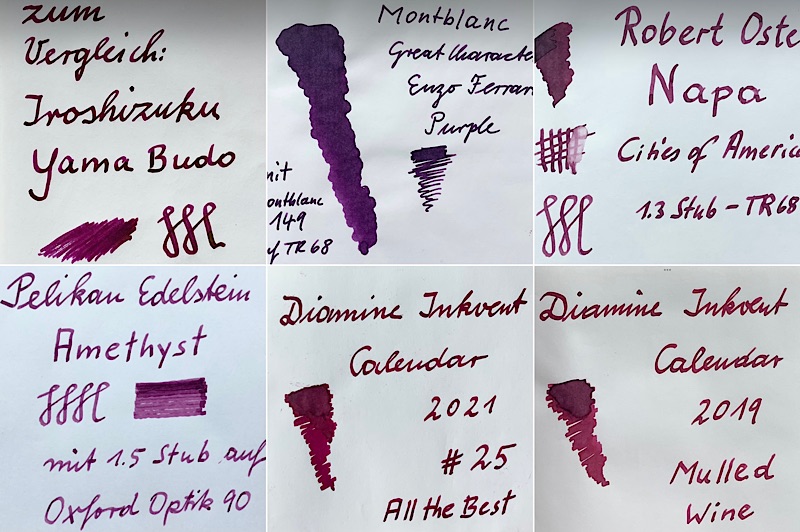 zum
Vergleich:
Iroshizuku
Yama Budo
Montblanc
Great Characte
Enzo Ferrar
Purple
mit
ontblanc
149
uf TR68
Robert Oste
Napa
Cities of America
1.3 Stub - TR68
Pelikan Edelstein
Amethyst
mit 1.5 Stub auf
Oxford Optik 90
Diamine Inkvent
Calendar
2021
#25
All the Best
Diamine Inkvent
Calendar
2019
Mulled
Wine